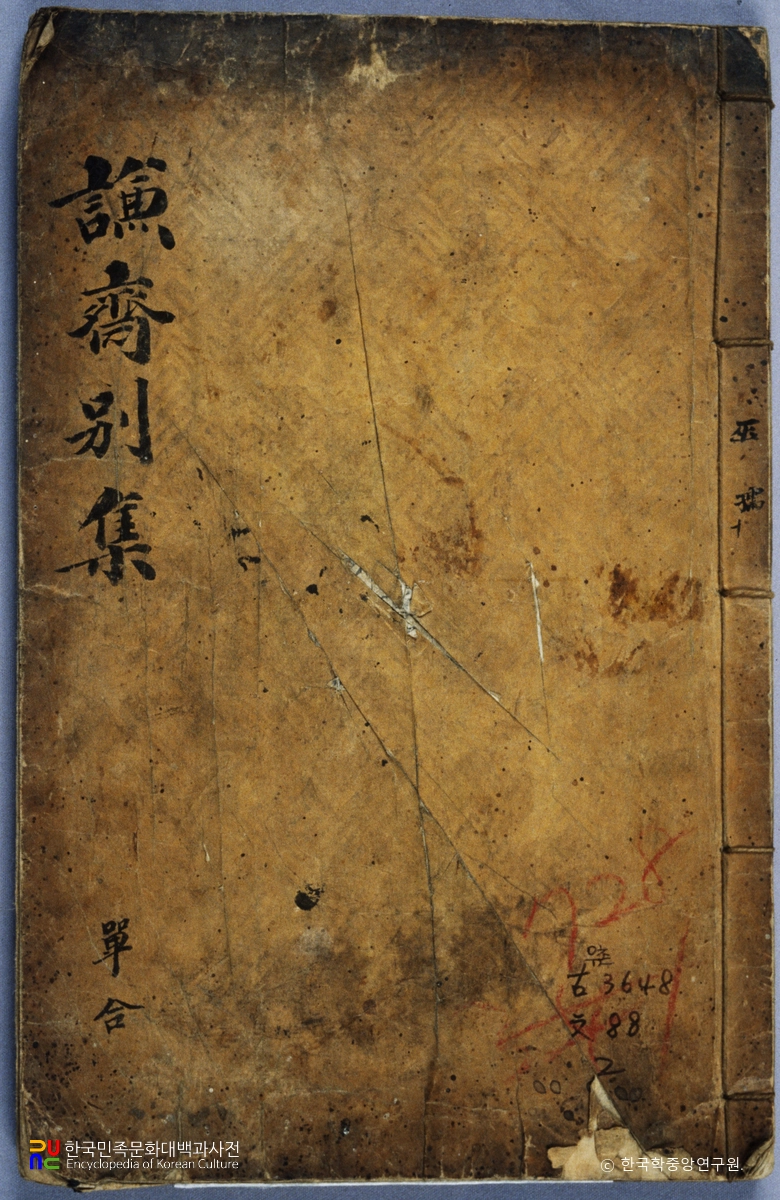 謙齋別集
單合
古 3648
文 88
2
한국민족문화대백과사전
Encyclopedia of Korean Culture
© 한국학중앙연구원.